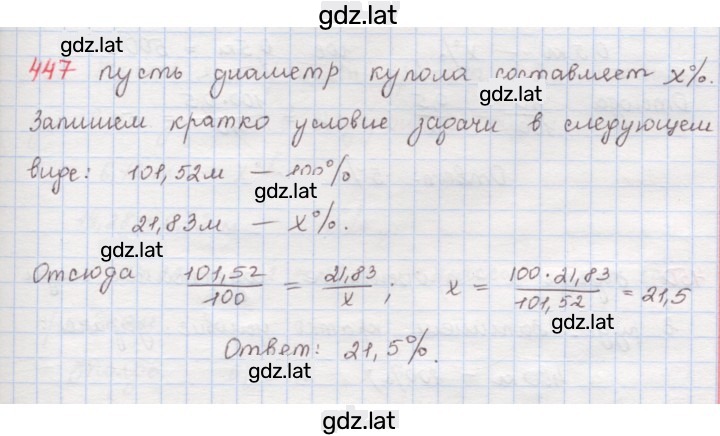 gdz.lat
gdz.lat
447 пусть диаметр купола составляет x%.
gdz.lat
Запишем кратко условие задачи в следующем
виде: 101,52м — 100%
gdz.lat
21,83м — x%.
gdz.lat
Отсюда 101,52/100 = 21,83/x ; x = 100·21,83/101,52 = 21,5
gdz.lat
Ответ: 21,5%.
gdz.lat
gdz.lat